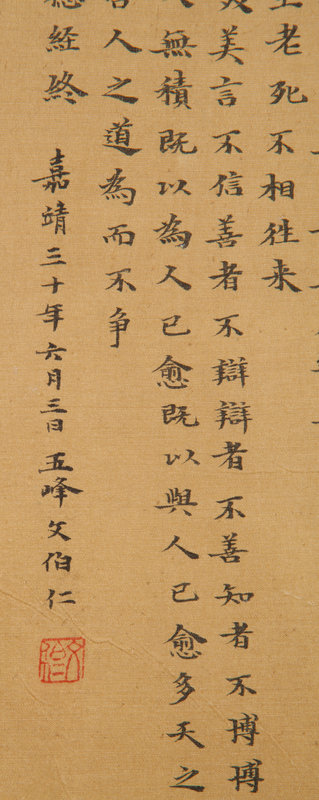 老死不相往来
美言不信善者不辯辯者不善知者不博博
無積既以為人已愈既以與人已愈多天之
人之道為而不争
經終
嘉靖三十年六月三日五峰文伯仁